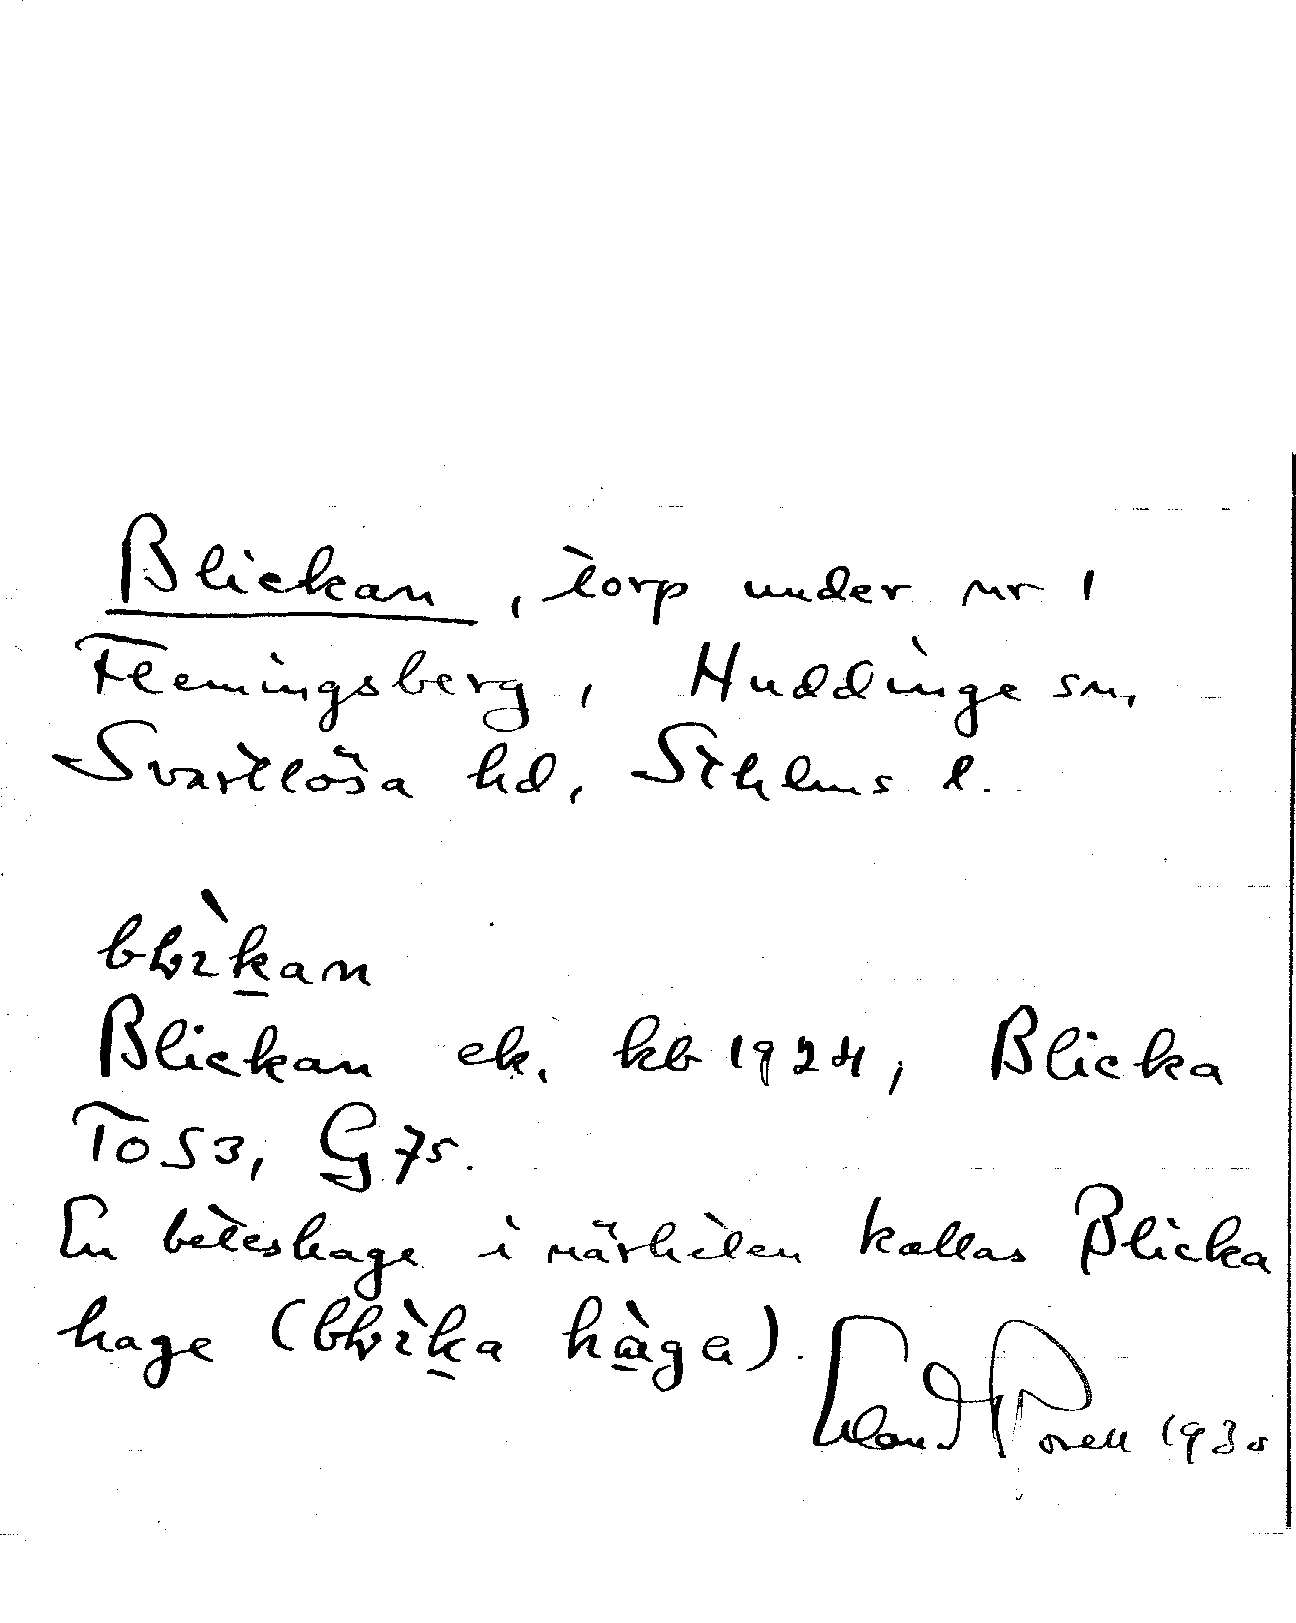 Blickan, torp under nr 1
Flemingsberg, Huddinge sn,
Svartlösa hd, Sthlms l.
Blickan ek. kb 1924, Blicka
To 53, G 75.
En beteshage i närheten kallas Blicka
hage
Erland Rosell 1930